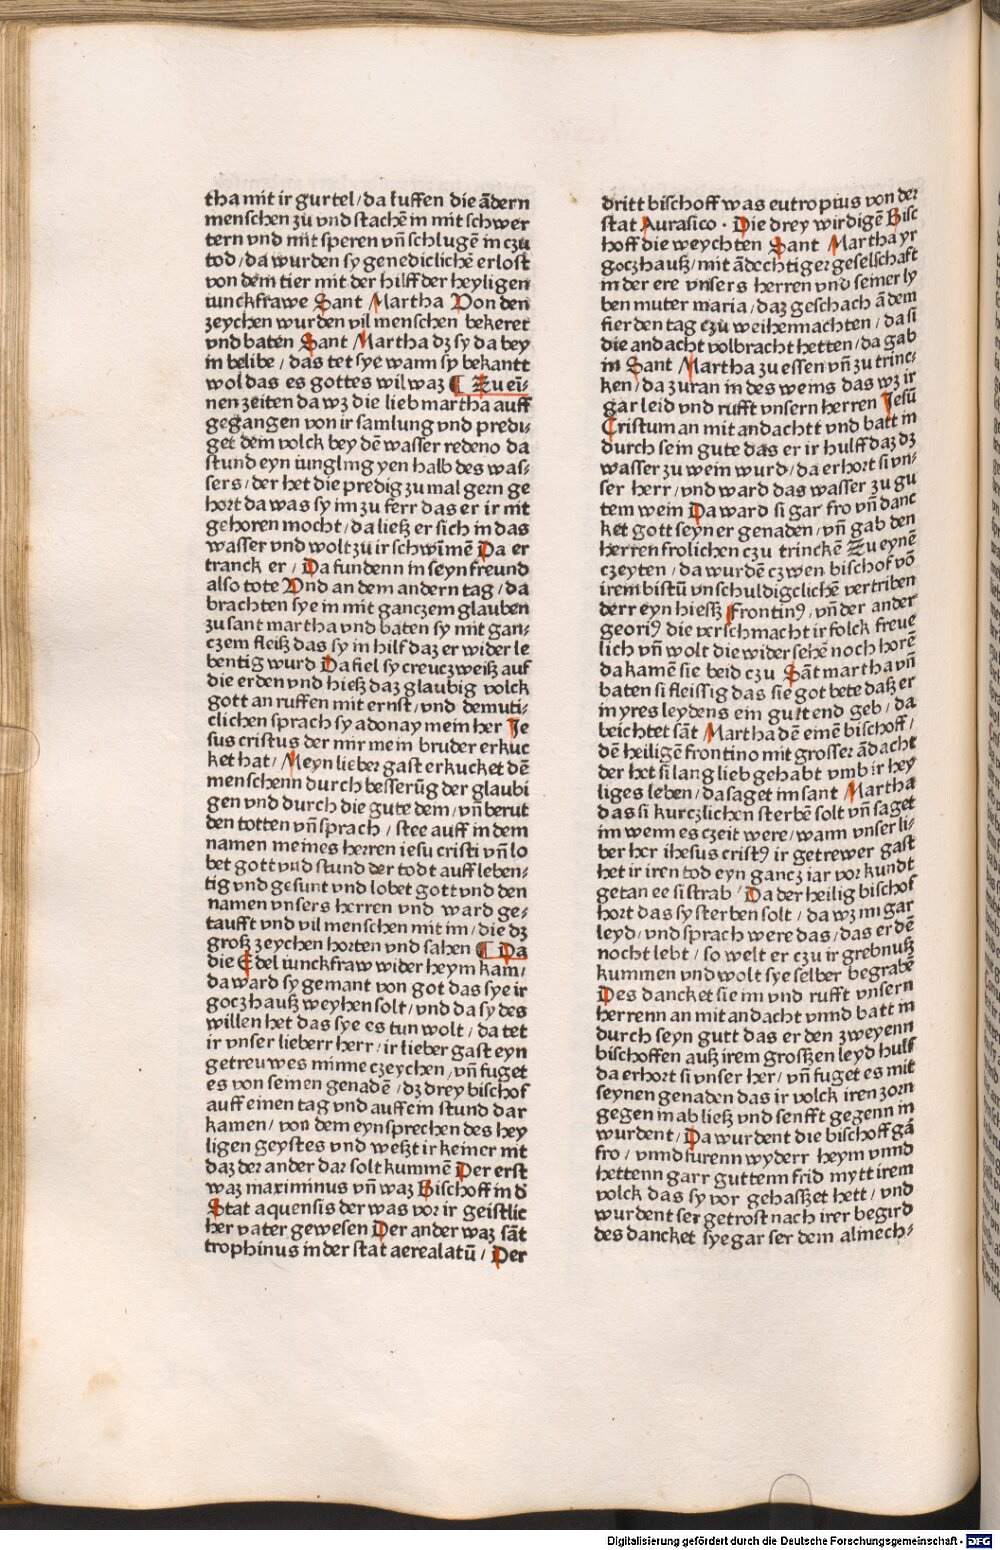 tha mit ir gurtel/da luffen die ādern
menschen zů vnd stachē in mit schwer
tern vnd mit speren vn̄ schlugē in czu
tod/da wurden sy genediclichē erlost
von dem tier mit der hilff der heyligen
iunckfrawe Sant Martha Von den
zeychen wurden vil menschen bekeret
vnd baten Sant Martha dz sy da bey
in belibe/das tet sye wann sy bekantt
wol das es gottes wil waz ¶ Zu ei⸗
nen zeiten da wz die lieb martha auff
gegangen von ir samlung vnd predi⸗
get dem volck bey dē wasser redeno da
stund eyn iungling yen halb des was⸗
sers/der het die predig zu mal gern ge
hort da was sy im zu ferr das er ir nit
gehoren mocht/da ließ er sich in das
wasser vnd wolt zu ir schwīmē Da er
tranck er/Da fundenn in seyn freund
also tote Vnd an dem andern tag/da
brachten sye in mit ganczem glauben
zu sant martha vnd baten sy mit gan⸗
czem fleiß das sy in hilf daz er wider le
bentig wurd Da fiel sy creuczweiß auf
die erden vnd hieß daz glaubig volck
gott an ruffen mit ernst/vnd demuti⸗
clichen sprach sy adonay mein her Je
sus cristus der mir mein bruder erkuc
ket hat/Meyn lieber gast erkucket dē
menschenn durch besserūg der glaubi
gen vnd durch die gute dem/vn̄ berut
den totten vn̄ sprach/stee auff in dem
namen meines herren iesu cristi vn̄ lo
bet gott vnd stund der todt auff leben⸗
tig vnd gesunt vnd lobet gott vnd den
namen vnsers herren vnd ward ge⸗
taufft vnd vil menschen mit im/die dz
groß zeychen horten vnd sahen ¶ Da
die Edel iunckfraw wider heym kam/
da ward sy gemant von got das sye ir
goczhauß weyhen solt/vnd da sy des
willen het das sye es tun wolt/da tet
ir vnser lieberr herr/ir lieber gast eyn
getreuwes minneczeychen/vn̄ fuget
es von seinen genadē/dz drey bischof
auff einen tag vnd auff ein stund dar
kamen/von dem eynsprechen des hey
ligen geystes vnd weßt ir keiner nit
daz der ander dar solt kummē Der erst
waz maximinus vn̄ waz Bischoff in d
Stat aquensis der was vor ir geistlic
her vater gewesen Der ander waz sāt
trophinus in der stat aerealatū/Der
dritt bischoff was eutropius von der
stat Aurasico · Die drey wirdigē Bisc
hoff die weychten Sant Martha yr
goczhauß/mit ādechtiger geselschaft
in der ere vnsers herren vnd seiner ly
ben muter maria/daz geschach ā dem
fierden tag czu weihennachten/da si
die andacht volbracht hetten/da gab
in Sant Martha zu essen vn̄ zu trinc⸗
ken/da zuran in des weins das wz ir
gar leid vnd rufft vnsern herren Jesū
Cristum an mit andachtt vnd batt in
durch sein gute das er ir hulff daz dz
wasser zu wein wurd/da erhort si vn⸗
ser herr/vnd ward das wasser zu gu
tem wein Da ward si gar fro vn̄ danc
ket gott seyner genaden/vn̄ gab den
herren frolichen czu trinckē Zu eynē
czeyten/da wurdē czwen bischof vō
irem bistū vnschuldigclichē vertriben
derr eyn hiessz Frontinꝰ/vn̄ der ander
georiꝰ die verschmacht ir folck freue
lich vn̄ wolt die wider sehē noch horē
da kamē sie beid czu Sāt martha vn̄
baten si fleissig das sie got bete daß er
in yres leydens ein gutt end geb/da
beichtet sāt Martha dē einē bischoff/
dē heiligē frontino mit grosser ādacht
der het si lang lieb gehabt vmb ir hey
liges leben/da saget im sant Martha
das si kurczlichen sterbē solt vn̄ saget
im wenn es czeit were/wann vnser li⸗
ber her ihesus cristꝰ ir getrewer gast
het ir iren tod eyn gancz iar vor kundt
getan ee si strab/Da der heilig bischof
hort das sy sterben solt/da wz im gar
leyd/vnd sprach were das/das er dē
nocht lebt/so welt er czu ir grebnuß
kummen vnd wolt sye selber begrabē
Des dancket sie im vnd rufft vnsern
herrenn an mit andacht vnnd batt in
durch seyn gutt das er den zweyenn
bischoffen auß irem großzen leyd hulf
da erhort si vnser her/vn̄ fuget es mit
seynen genaden das ir volck iren zorn
gegen in abließ vnd senfft gegenn in
wurdent/Da wurdent die bischoff gā
fro/vnnd furenn wyderr heym vnnd
hettenn garr guttenn frid mytt irem
volck das sy vor gehasßet hett/vnd
wurdent ser getrost nach irer begird
des dancket sye gar ser dem almech⸗
Digitalisierung gefördert durch die Deutsche Forschungsgemeinschaft - DFG